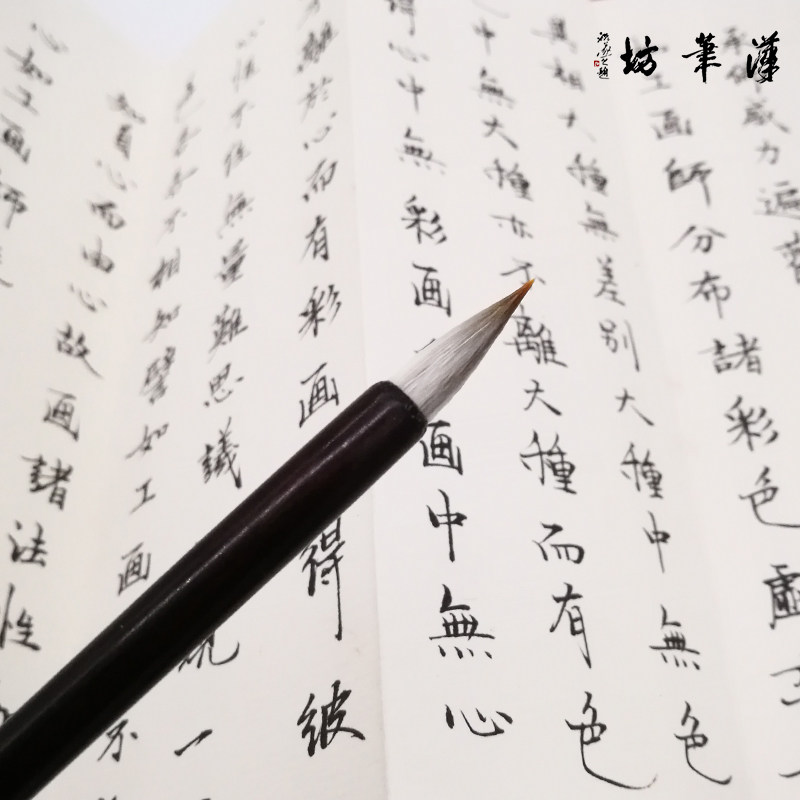 漢筆坊
威力遍
工画師分布諸彩色虛
異相大種無差別大種中無色
中無大種亦不離大種而有色
得心中無彩画画中無心
離於心而有彩画得彼
心恒不住無量難思議現一
各各不相知譬如工画不
知自心而由心故画諸法性
心如工画師